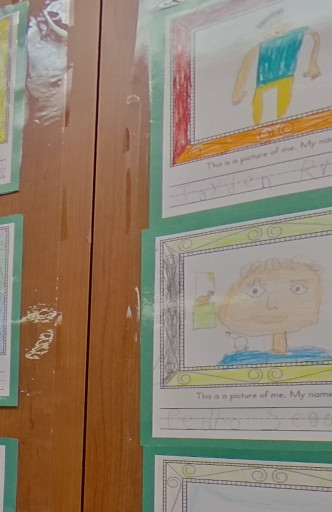 This is a picture of me. My nam
Jordan
This is a picture of me. My name
Pedro